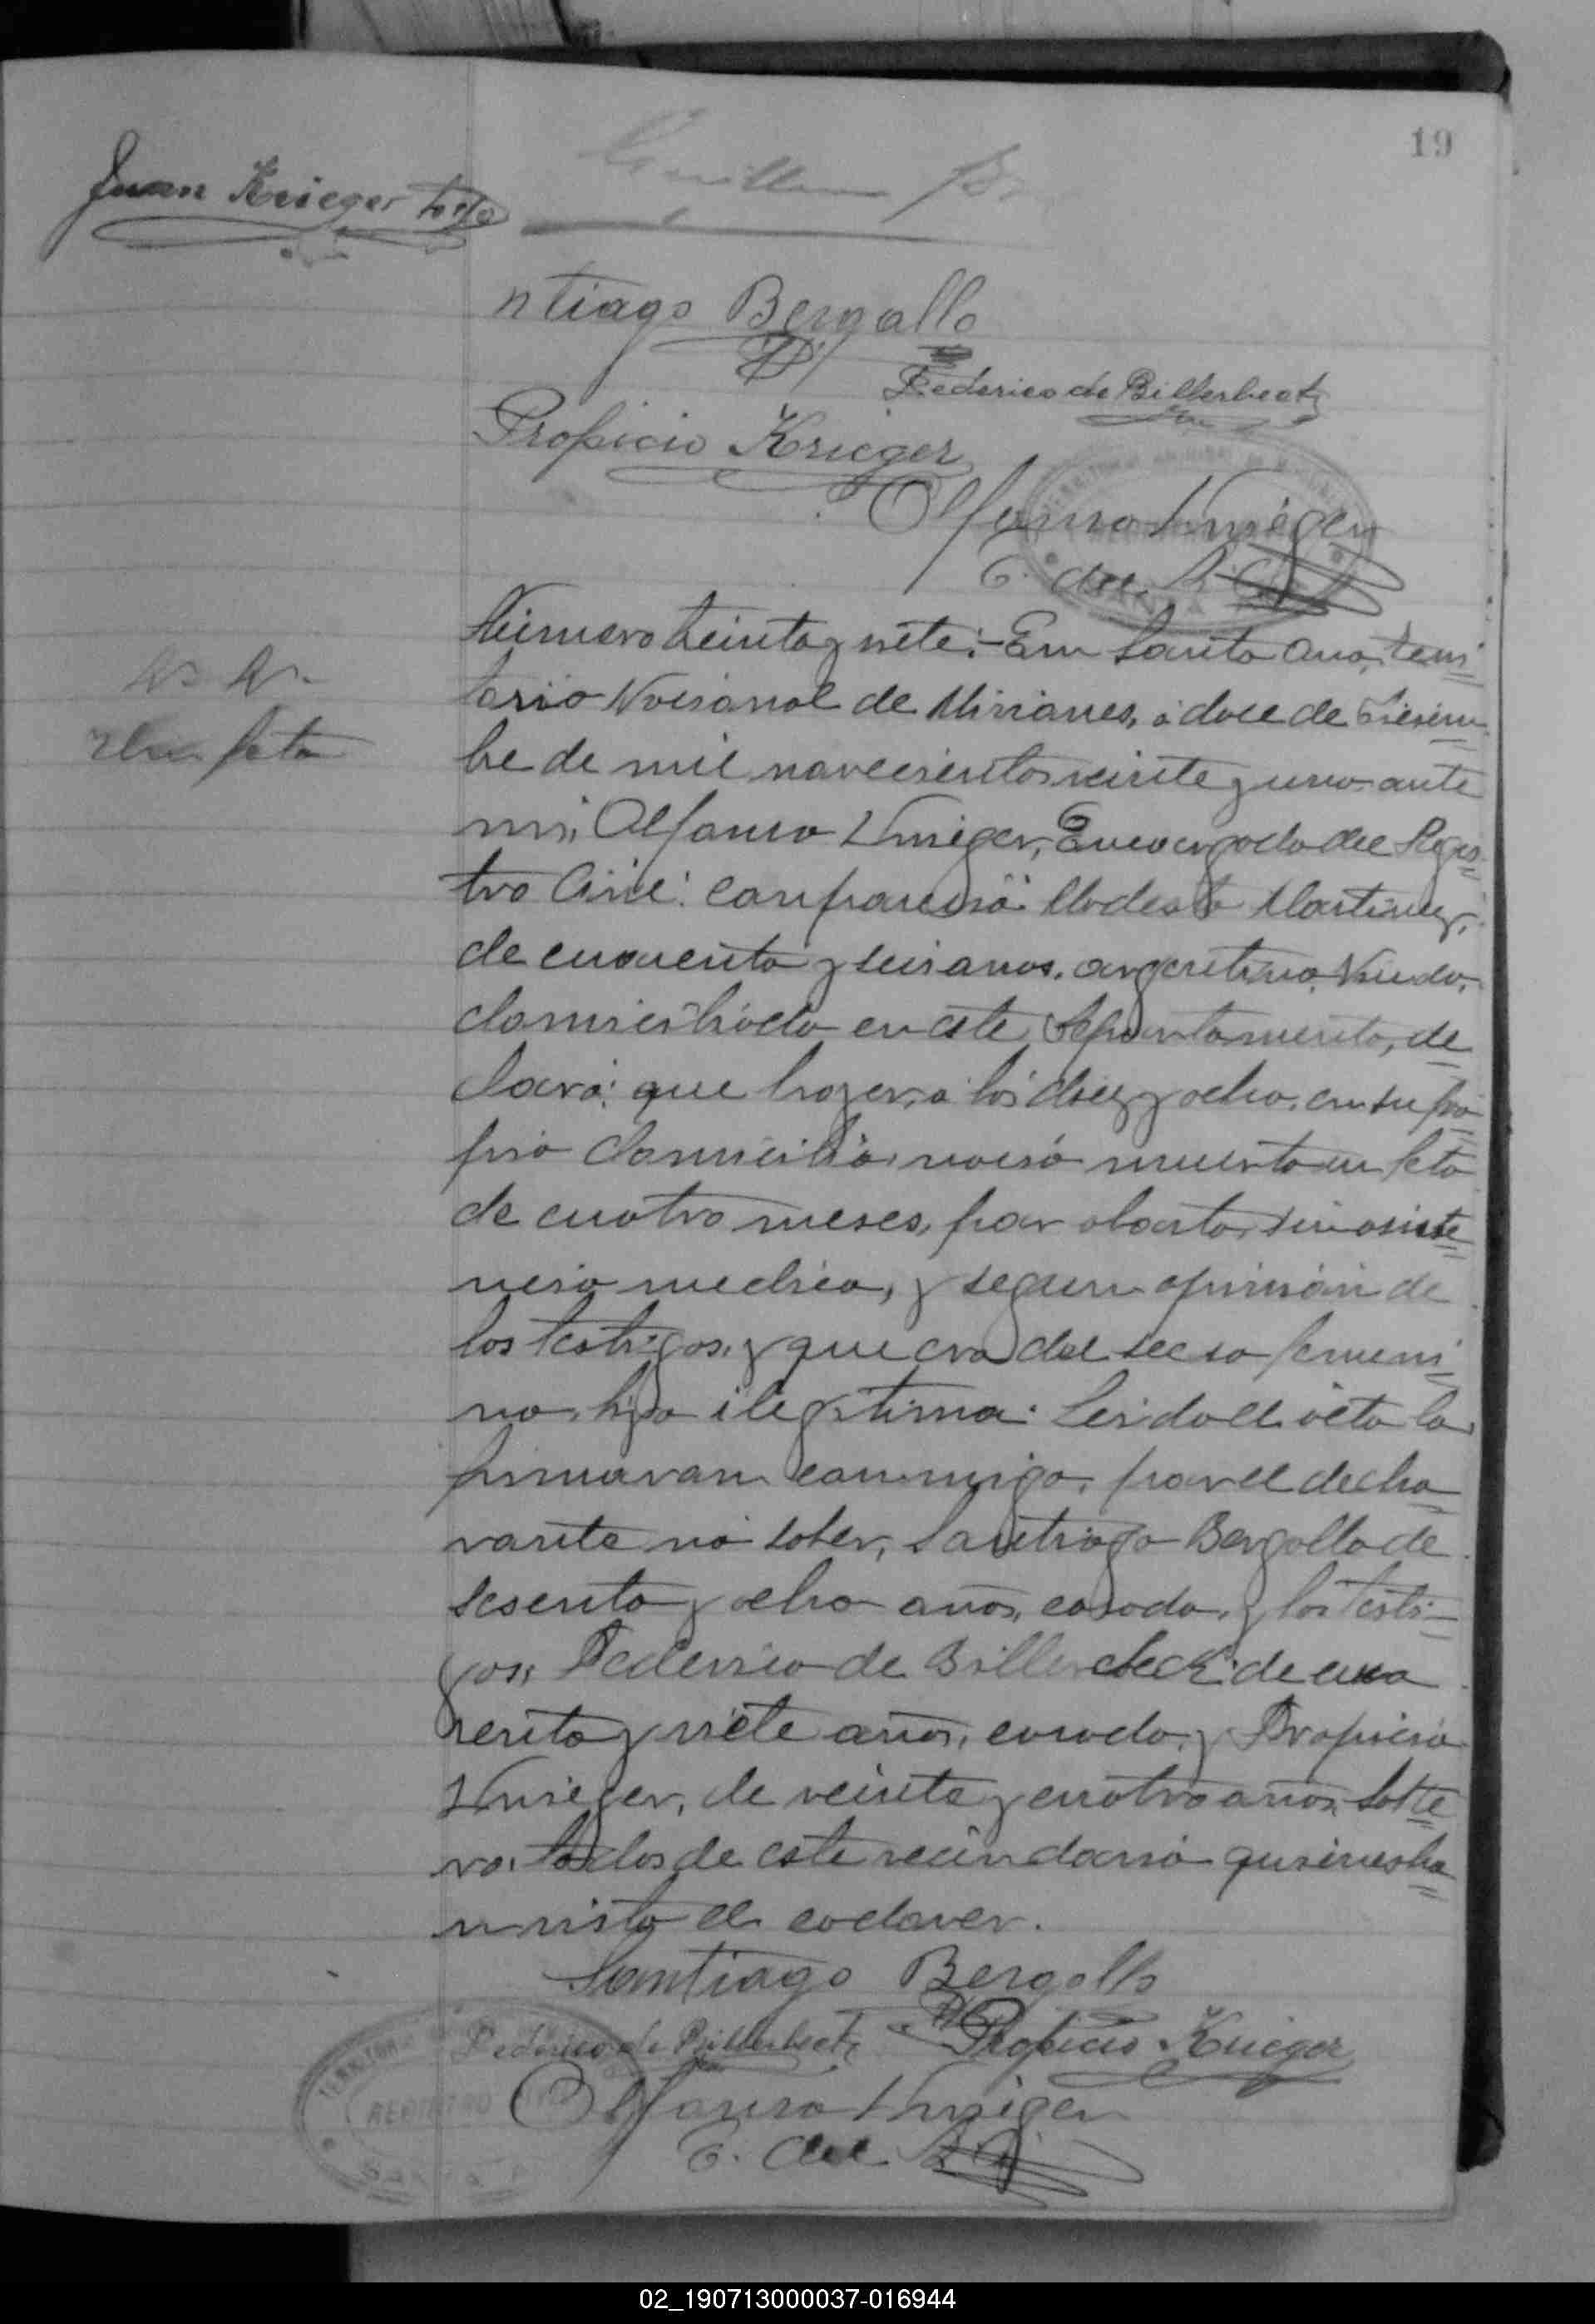 19
Juan Krieger
ntiago Bergallo
Federico de Billerbeck
Propicio Krieger
Alfonso Krieger
E. del R. C.
N. N.
Un feto
Número treinta y siete:- En Santa Ana, terri
torio Nacional de Misiones, a doce de Diciem
bre de mil novecientos veinte y uno ante
mi, Alfonso Krieger, Encargado del Regis
tro Civil: Compareció: Modesto Martinez,
de cuarenta y seis anos, argentino, Viudo,
domiciliado en este Departamento, de
claró: que hayer, a las diez y ocho, en su pro
pio domicilio, nació muerto un feto
de cuatro meses, por aborto, sin asiste
ncia medica, y segun opinión de
los testigos, y que era del secso femeni
no, hija ilegitima. Leida el acta la
firmaron conmigo, por el decla
rante no saber, Santiago Bergallo de
sesenta y ocho años, casado, y los testi
gos, Federico de Billerbeck de cua
renta y siete años, casado, y Propicio
Krieger, de veinte y cuatro años, solte
ro, todos de este vecindario quienes ha
n visto el cadaver.
Santiago Bergallo
Federico de Billerbeck Propicio Krieger
Alfonso Krieger
E. del R. C.
REGISTRO
02_190713000037-016944